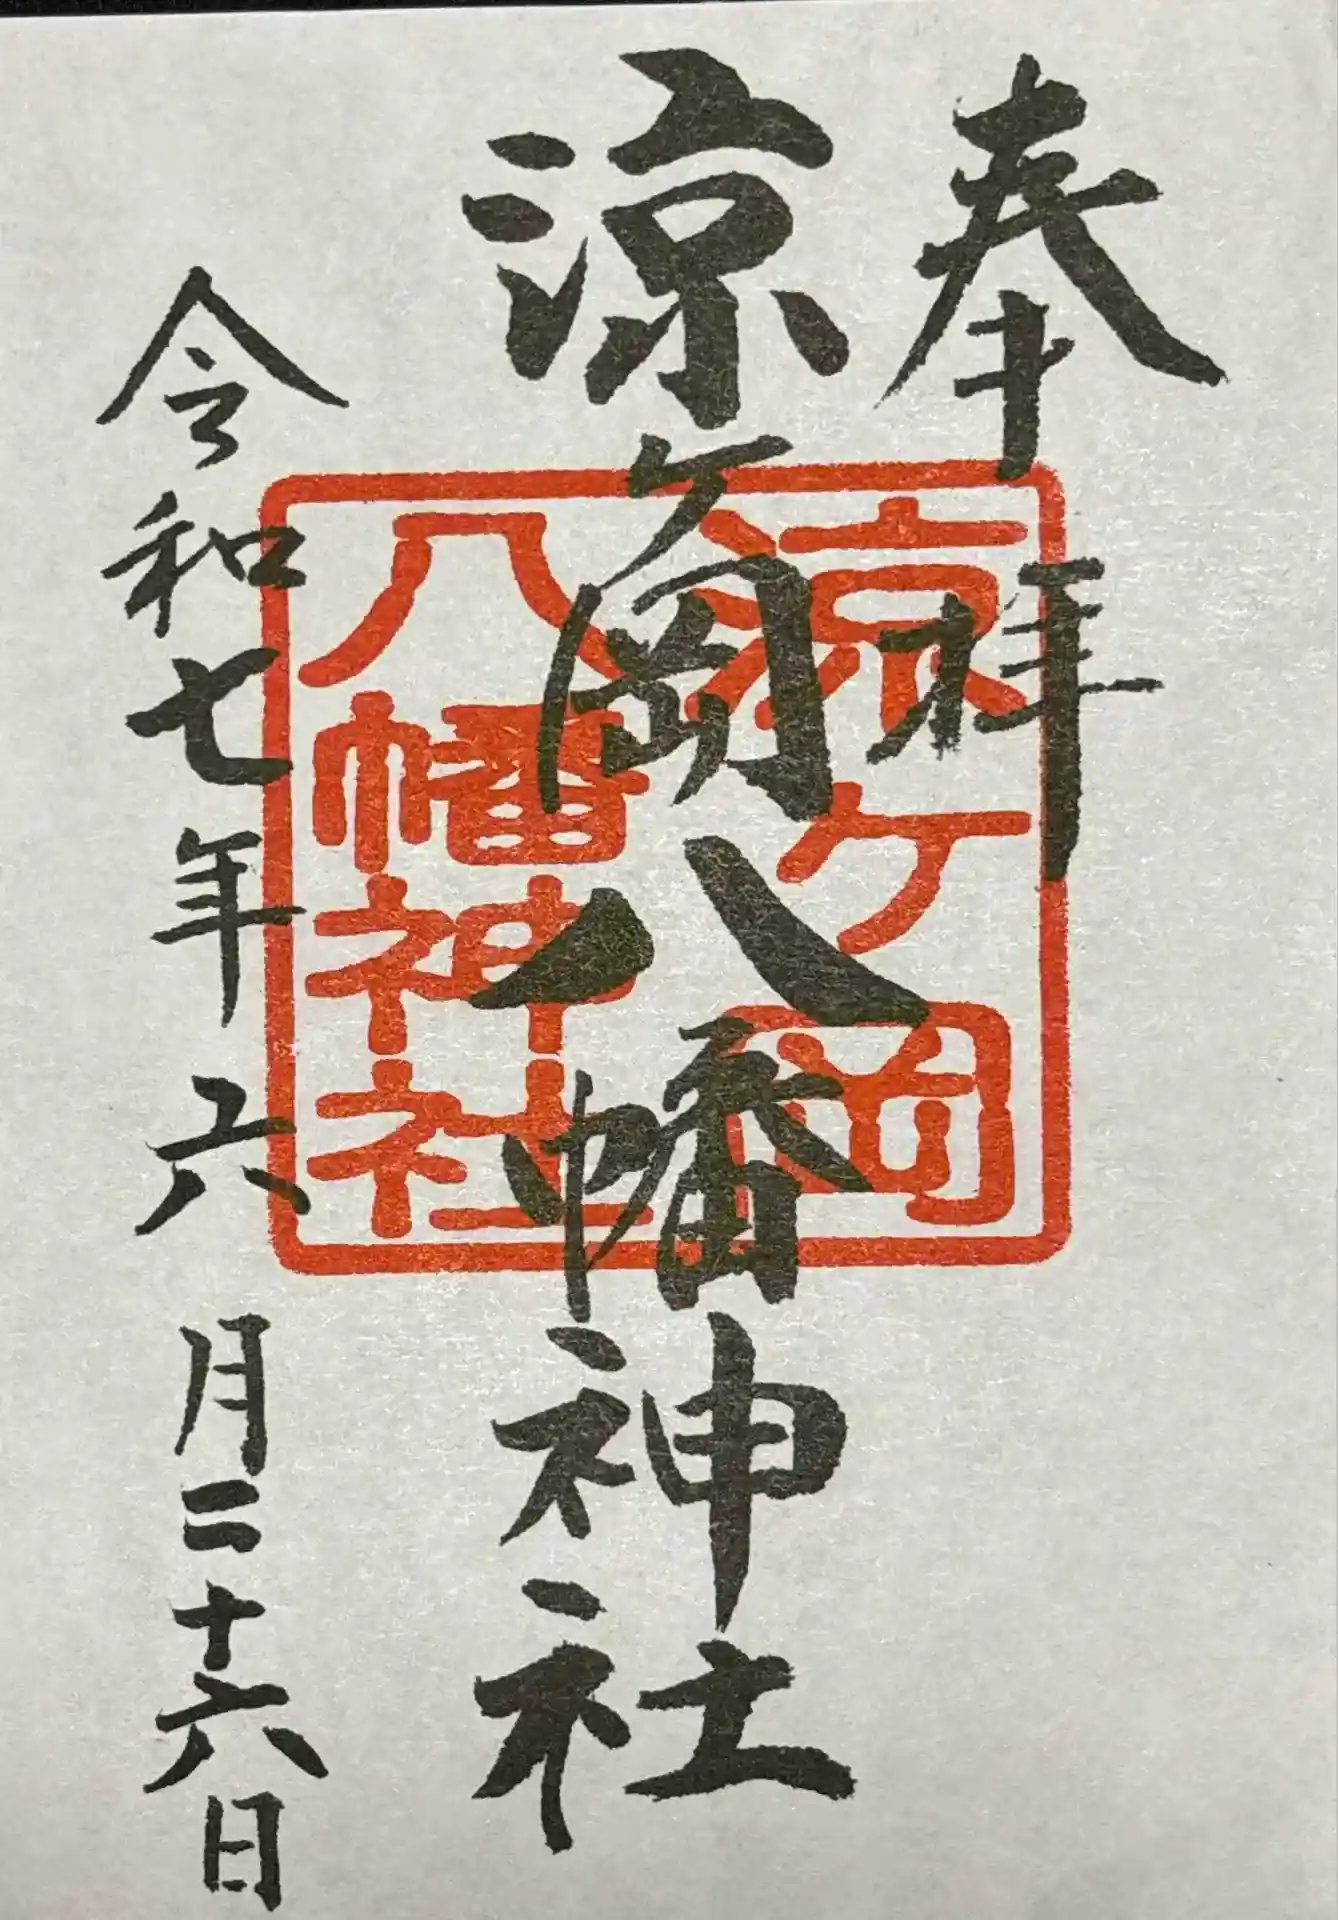 奉拝
涼ケ岡八幡神社
涼ケ岡
八幡神社
令和七年六月二十六日